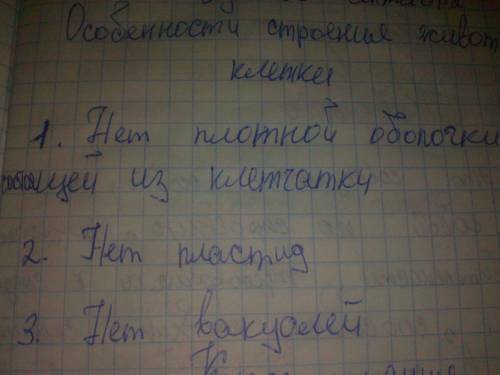 Особенности строения живот
клетки
1. Нет плотной оболочки
стоящей из клетчатки
2. Нет пластид
3. Нет вакуолей